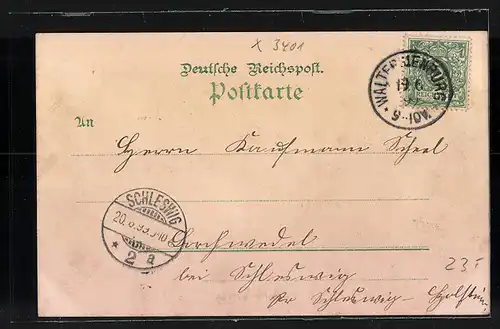 x 3401
Deutsche Reichspost.
Postkarte
WALTERNIENBURG
19 6
9-10V.
An
Herrn Kaufmann Scheel
SCHLESWIG
20.6.99.9-10
* 2 a
bei Schleswig
Pr Schleswig-Holstein
23-